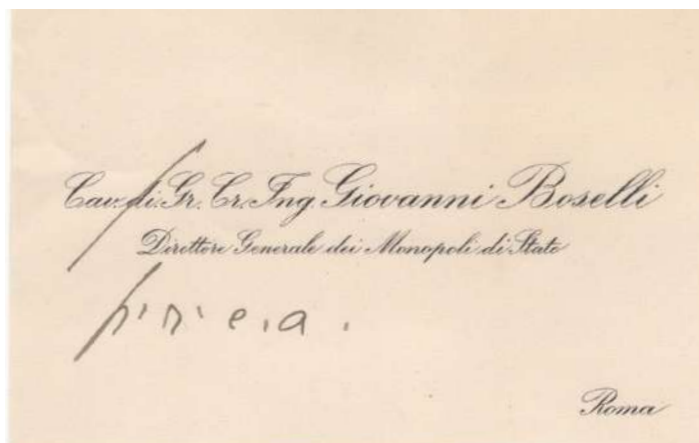 Cav. di Gr. Cr. Ing. Giovanni Boselli
Direttore Generale dei Monopoli di Stato
Roma